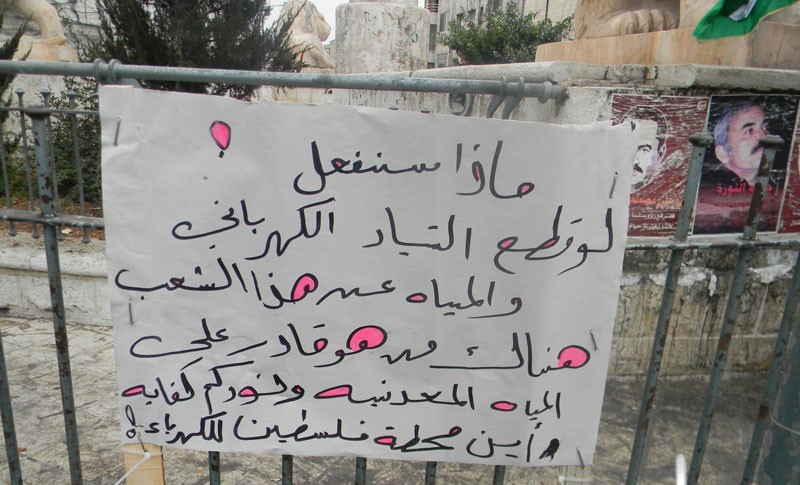 ماذا سنفعل !
لو قطع التيار الكهربائي
والمياه عن هذا الشعب
هناك من هو قادر على
المياه المعدنيه ونوركم كفايه
وأين محطة فلسطين للكهرباء ؟!
الثورة